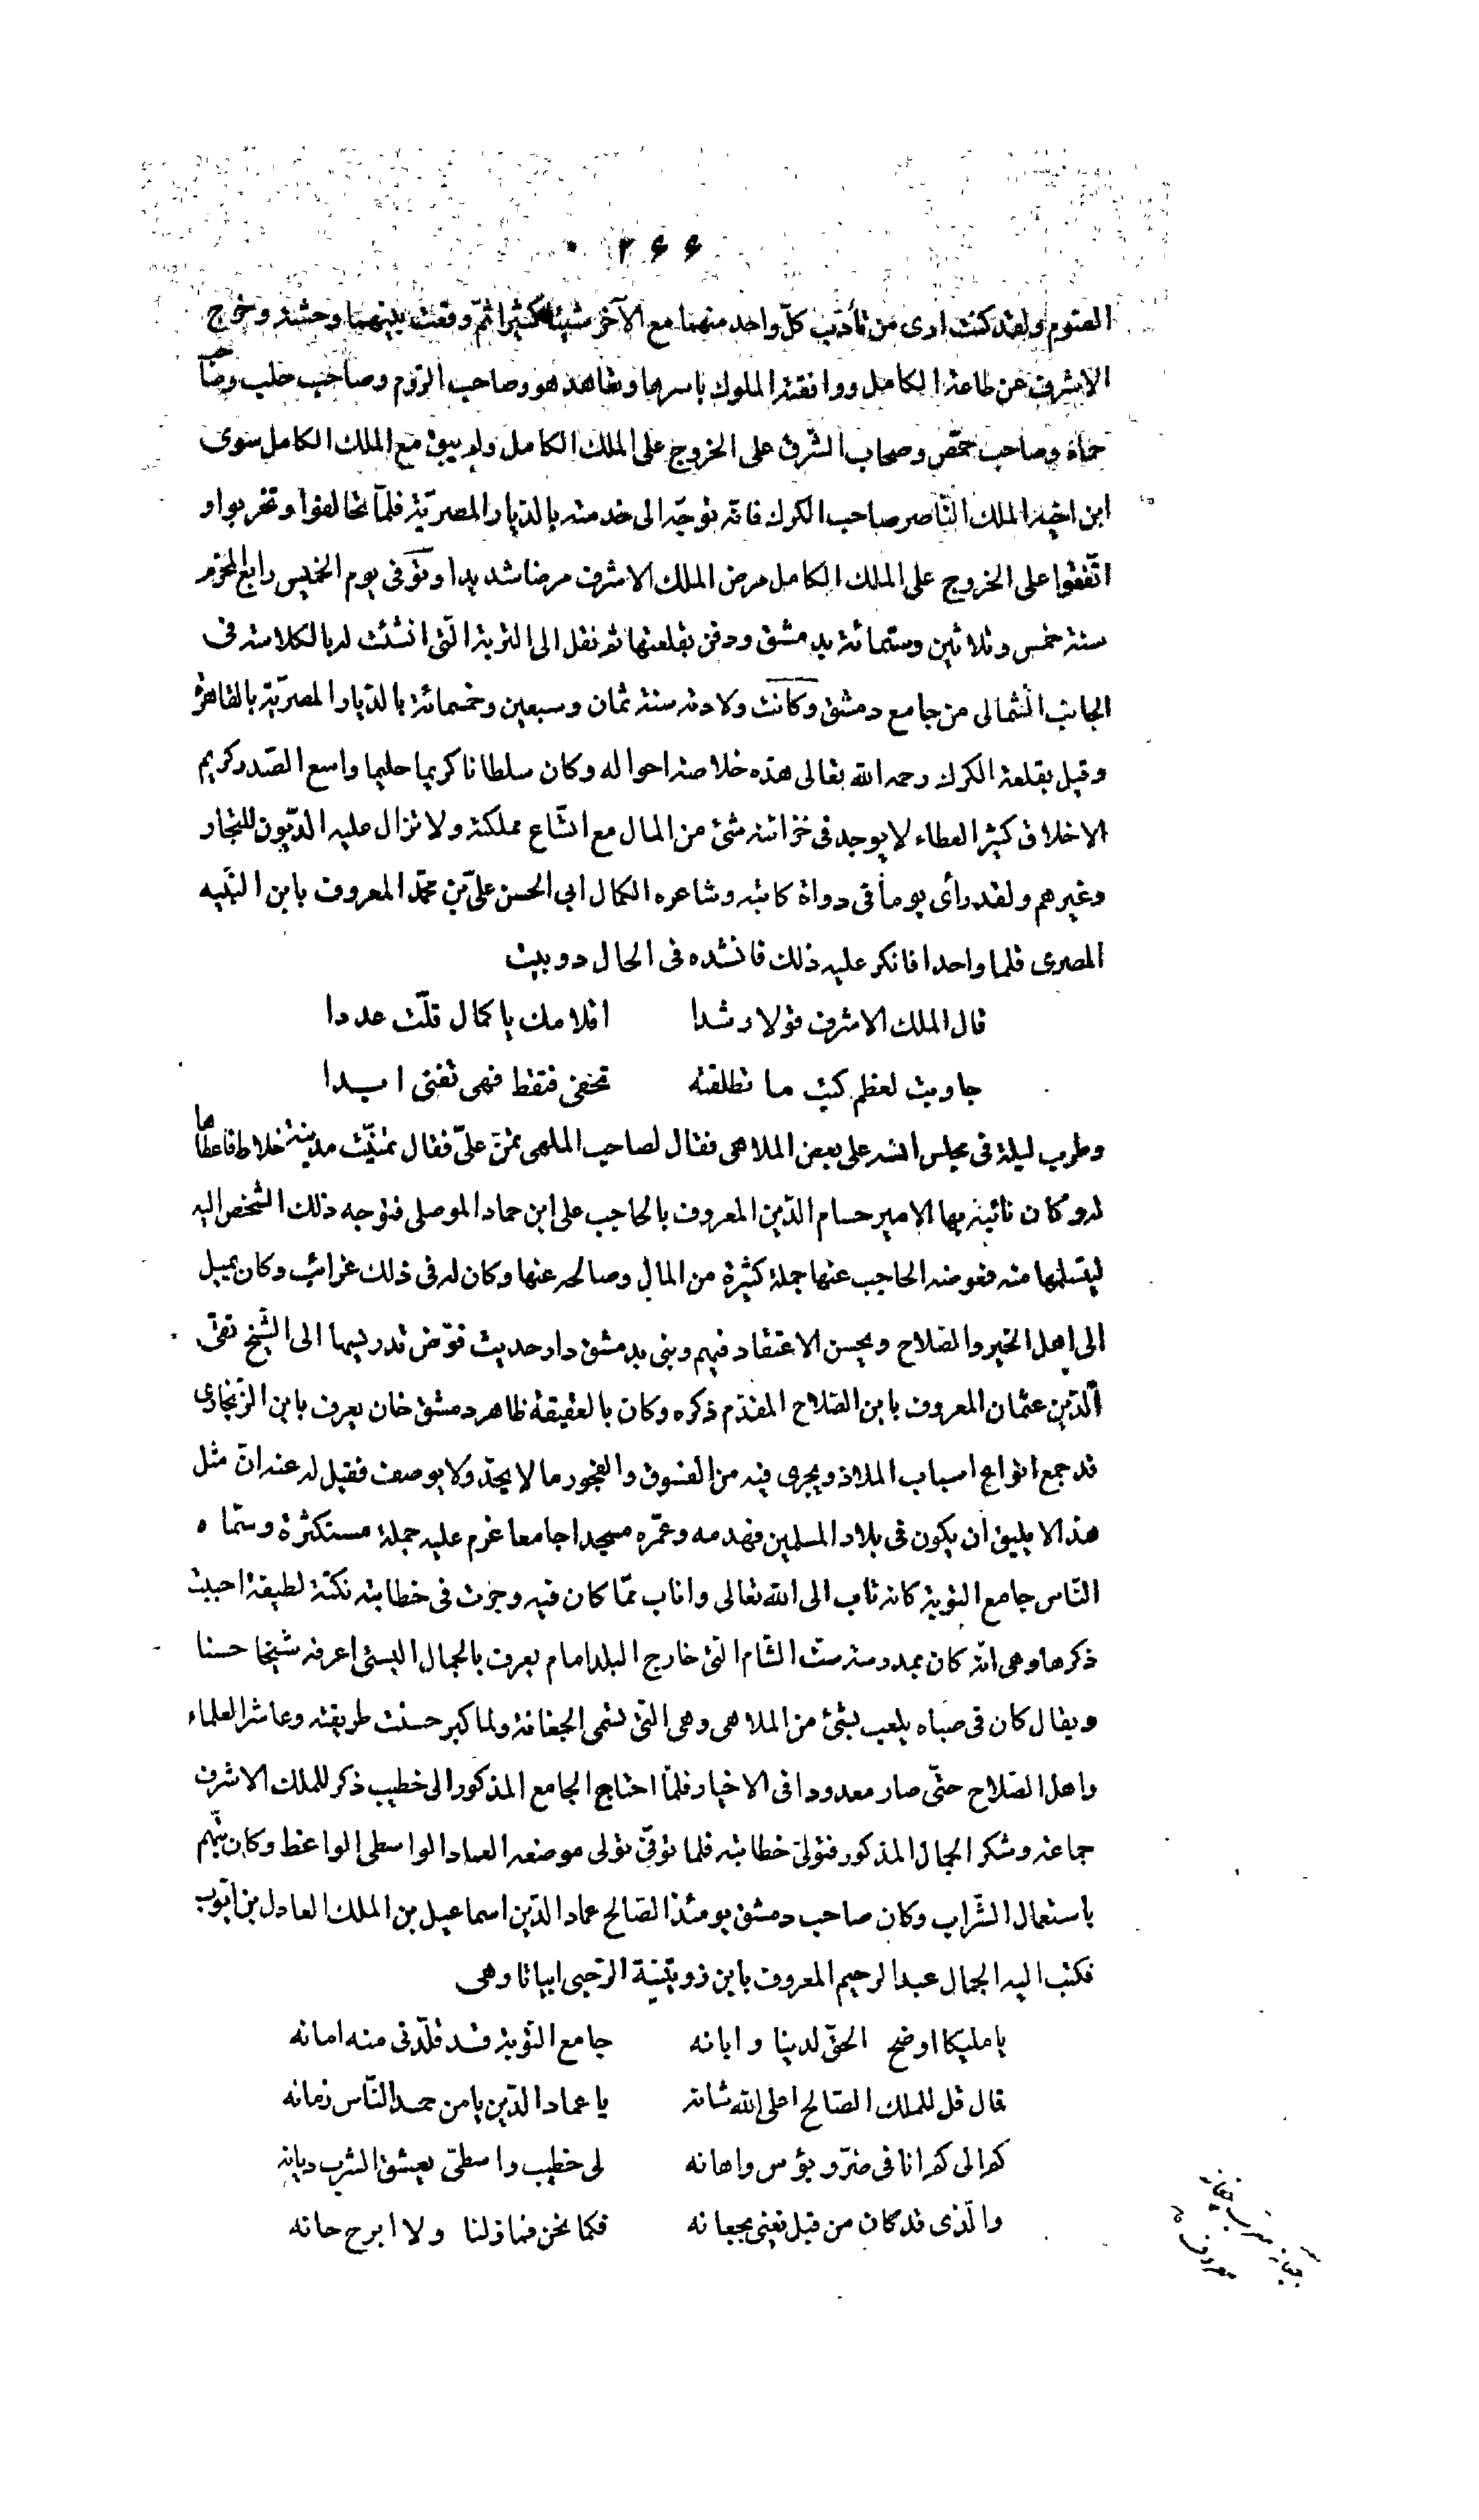 ۲۶۶
الصتوم ولقد كنت ارى من تأدّب كلّ واحد منهما مع الآخر شيئا كثيرا ثمّ وقعت بينهما وحشة وخرج
الاشرف عن طاعة الكامل ووافقته الملوك باسرها وتعاهد هو وصاحب الروم وصاحب حلب وصاحب
حماة وصاحب حمّص وصحاب الشّرق على الخروج على الملك الكامل ولم يبق مع الملك الكامل سوى
ابن اخيه الملك النّاصر صاحب الكرك فانّه توجّه الى خدمته بالديار المصريّة فلمّا تحالفوا وتحزبوا و
اتّفقوا على الخروج على الملك الكامل مرض الملك الاشرف مرضا شديدا وتوفى يوم الخميس رابع المحرّم
سنة خمس وثلاثين وستمائة بدمشق ودفن بقلعتها ثم نقل الى التربة الّتى انشئت له بالكلاسة فى
الجانب الشمالى من جامع دمشق وكانت ولادته سنة ثمان وسبعين وخمسمائة بالديار المصريّة بالقاهرة
وقيل بقلعة الكرك رحمه الله تعالى هذه خلاصة احواله وكان سلطانا كريما حليما واسع الصّدر كريم
الاخلاق كثير العطاء لا يوجد فى خزانته شئ من المال مع اتّساع مملكته ولا تزال عليه الديّون للتجار
وغيرهم ولقد رأى يوما فى دواة كاتبه وشاعره الكمال ابى الحسن علىّ بن محمّد المعروف بابن النّبيه
المصرى قلما واحدا فانكر عليه ذلك فانشده فى الحال دوبيت
قال الملك الاشرف قولا رشدا اقلامك يا كمال قلّت عددا
جاوبت لعظم كتب ما تطلقه تحفى فتقط فهى تفنى ابدا
وطرب ليلة فى مجلس انسه على بعض الملاهى فقال لصاحب الملهى تمنّ علىّ فقال تمنّيت مدينة خلاط فاعطاها
له وكان نائبه بها الامير حسام الدّين المعروف بالحاجب على ابن حماد الموصلى فتوجه ذلك الشخص اليه
ليتسلمها منه فعوضه الحاجب عنها جملة كثيرة من المال وصالحه عنها وكان له فى ذلك غرائب وكان يميل
الى اهل الخير والصّلاح ويحسن الاعتقاد فيهم وبنى بدمشق دار حديث فوّض تدريسها الى الشّيخ تقىّ
الّدين عثمان المعروف بابن الصّلاح المقدّم ذكره وكان بالعقيقة ظاهر دمشق خان يعرف بابن الزّنجارى
قد جمع انواع اسباب الملاذ ويجرى فيه من الفسوق والفجور ما لا يحدّ ولا يوصف فقيل له عنه انّ مثل
هذا لا يليق ان يكون فى بلاد المسلمين فهدمه وعمّره مسجدا جامعا غرم عليه جملة مستكثرة وسمّاه
النّاس جامع التوبة كانه تاب الى الله تعالى واناب ممّا كان فيه وجرت فى خطابته نكتة لطيفة احببت
ذكرها وهى انّه كان بمدرسة ستّ الشّام الّتى خارج البلد امام يعرف بالجمال البستى اعرفه شيخا حسنا
ويقال كان فى صباه يلعب بشئ من الملاهى وهى التى تسمى الجغانة ولما كبر حسنت طريقته وعاشر العلماء
واهل الصّلاح حتّى صار معدودا فى الاخيار فلمّا احتاج الجامع المذكور الى خطيب ذكر للملك الاشرف
جماعة وشكر الجمال المذكور فتولّى خطابته فلما توفّى تولى موضعه العماد الواسطى الواعظ وكان يتّهم
باستعمال الشّراب وكان صاحب دمشق يومئذ الصّالح عماد الدّين اسماعيل بن الملك العادل بن ايّوب
فكتب اليه الجمال عبد الرحيم المعروف بابن زويتنية الرّحبى ابياتا وهى
يا مليكا اوضح الحقّ لدينا وابانه جامع التّوبة قد قلّدنى منه امانه
قال قل للملك الصّالح اعلى الله شانه يا عماد الدّين يا من حمد النّاس زمانه
كم الى كم انا فى ضرّ وبؤس واهانه لى خطيب واسطىّ يعشق الشرب ديانه
والّذى قد كان من قبل تغنى بجعانه فكما نحن فما زلنا ولا ابرح حانه